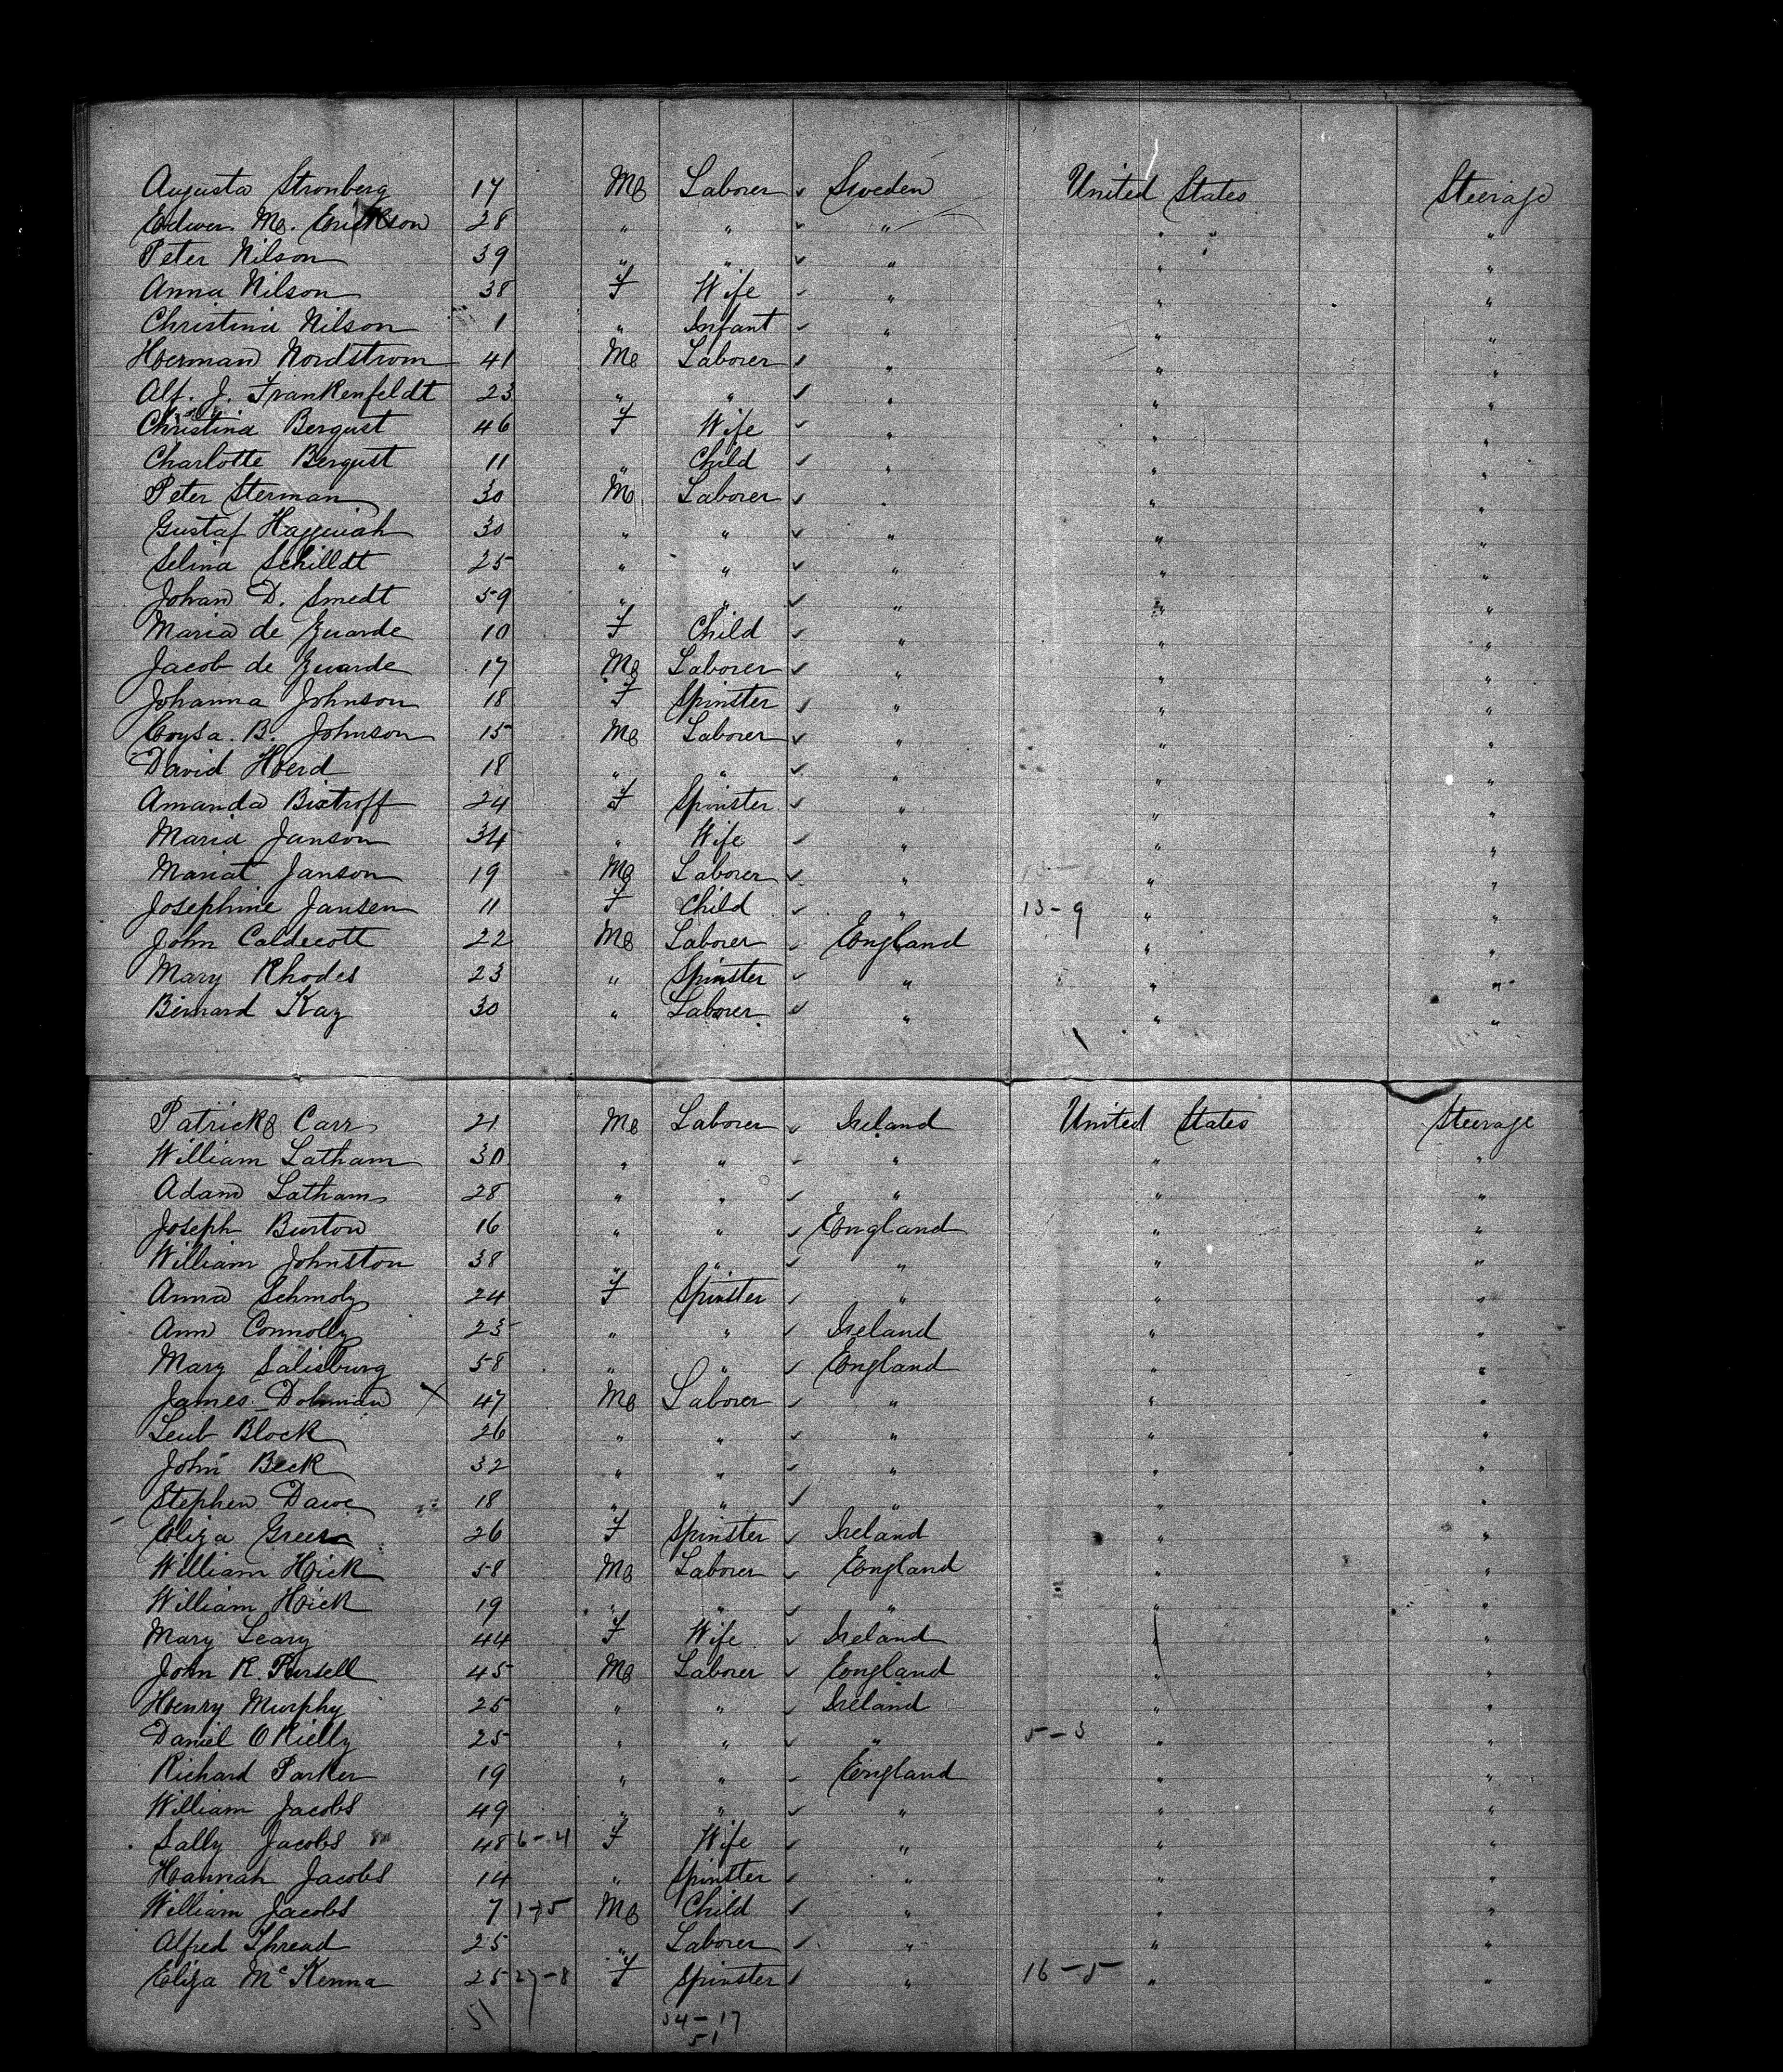 Augusta Stronberg 17 M Laborer ✓ Sweden United States Steerage
Edwin M. Erickson 28 " " ✓ " " "
Peter Nilson 39 " " ✓ " " "
Anna Nilson 38 F Wife ✓ " " "
Christina Nilson 1 " Infant ✓ " " "
Herman Nordstrom 41 M Laborer ✓ " " "
Alf. J. Frankenfeldt 23 " " ✓ " " "
Christina Bergust 46 F Wife ✓ " " "
Charlotte Bergust 11 " Child ✓ " " "
Peter Sterman 30 M Laborer ✓ " " "
Gustaf 30 " " ✓ " " "
Selina Schilldt 25 " " ✓ " " "
Johan D. Smedt 59 " " ✓ " " "
Maria de Zuarde 10 F Child ✓ " " "
Jacob de Zuarde 17 M Laborer ✓ " " "
Johanna Johnson 18 F Spinster ✓ " " "
B. Johnson 15 M Laborer ✓ " " "
David Herd 18 " " ✓ " " "
Amanda Bixtroff 24 F Spinster ✓ " " "
Maria Janson 34 " Wife ✓ " " "
Mariat Janson 19 M Laborer ✓ " " "
Josephine Jansen 11 F Child ✓ " 13-9 " "
John Caldecott 22 M Laborer ✓ England " "
Mary Rhodes 23 " Spinster ✓ " " "
Bernard Kay 30 " Laborer ✓ " " "
Patrick Carr 21 M Laborer ✓ Ireland United States Steerage
William Latham 30 " " ✓ " " "
Adam Latham 28 " " ✓ " " "
Joseph Burton 16 " " ✓ England " "
William Johnston 38 " " ✓ " " "
Anna Schmoly 24 F Spinster ✓ " " "
Ann Connolly 23 " " ✓ Ireland " "
Mary Salisburg 58 " " ✓ England " "
James Dohman X 47 M Laborer ✓ " " "
Leub Block 26 " " ✓ " " "
John Beck 32 " " ✓ " " "
Stephen Dawe 18 " " ✓ " " "
Eliza Green 26 F Spinster ✓ Ireland " "
William Hick 58 M Laborer ✓ England " "
William Hick 19 " " ✓ " " "
Mary Leary 44 F Wife ✓ Ireland " "
John R. Pursell 45 M Laborer ✓ England " "
Henry Murphy 25 " " ✓ Ireland " "
Daniel O Rielly 25 " " ✓ " 5-3 " "
Richard Parker 19 " " ✓ England " "
William Jacobs 49 " " ✓ " " "
Sally Jacobs 48 6-4 F Wife ✓ " " "
Hannah Jacobs 14 " Spinster ✓ " " "
William Jacobs 7 1-5 M Child ✓ " " "
Alfred Thread 25 " Laborer ✓ " " "
Eliza McKenna 25 27-8 F Spinster ✓ " 16-5 " "
51 34-17
51